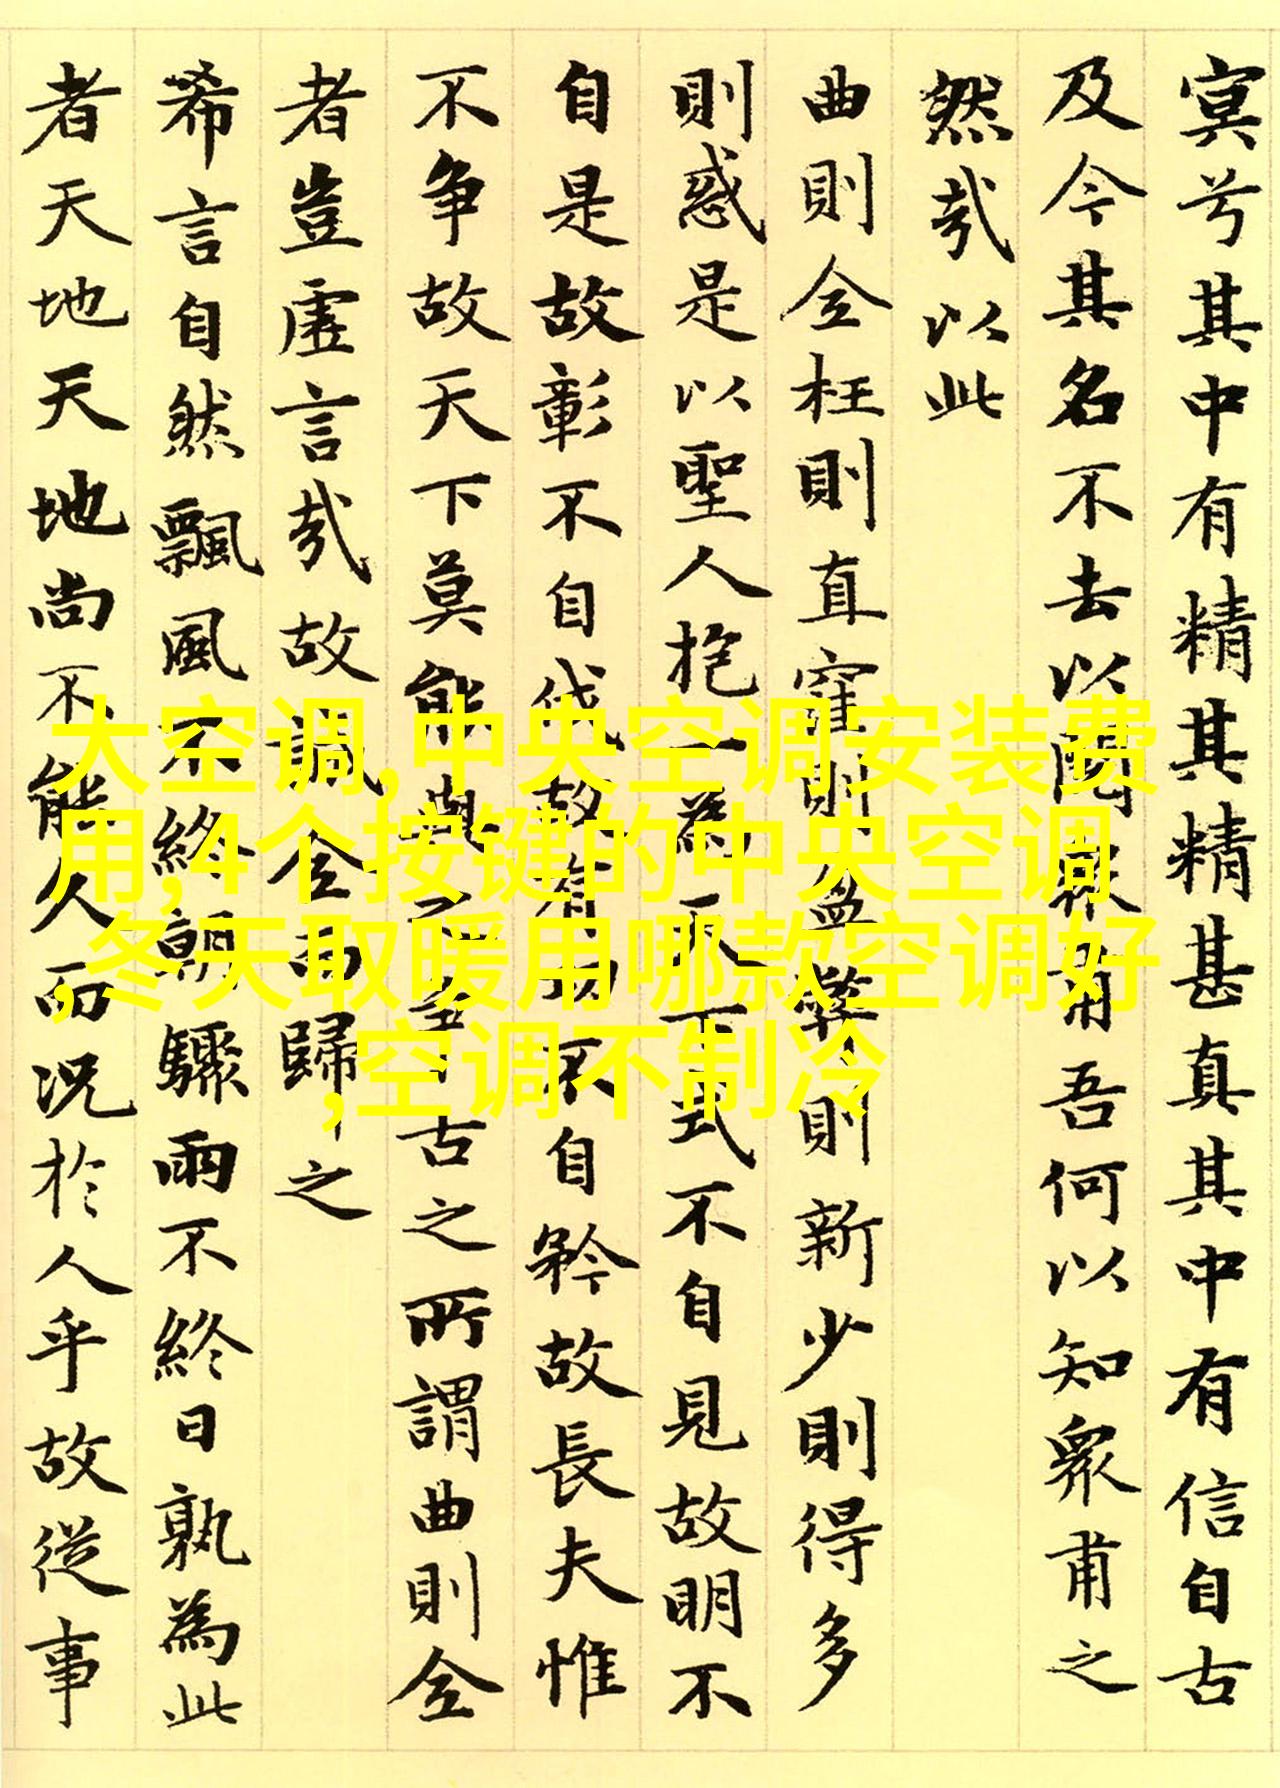 冥兮其中有精其精甚真其中有信自古
及今其名不去以閱眾甫吾何以知眾甫之
然哉以此
曲則全枉則直窪則盈弊則新少則得多
則惑是以聖人抱一為天下式不自見故明不
自是故彰不自伐故有功不自矜故長夫惟
不争故天下莫能與之争古之所謂曲則全
者豈虛言哉故誠全而歸之
希言自然飄風不終朝驟雨不終日孰為此
者天地天地尚不能久而況於人乎故從事
大空调,中央空调安装费
用,4个按键的中央空调
,冬天取暖用哪款空调好
,空调不制冷